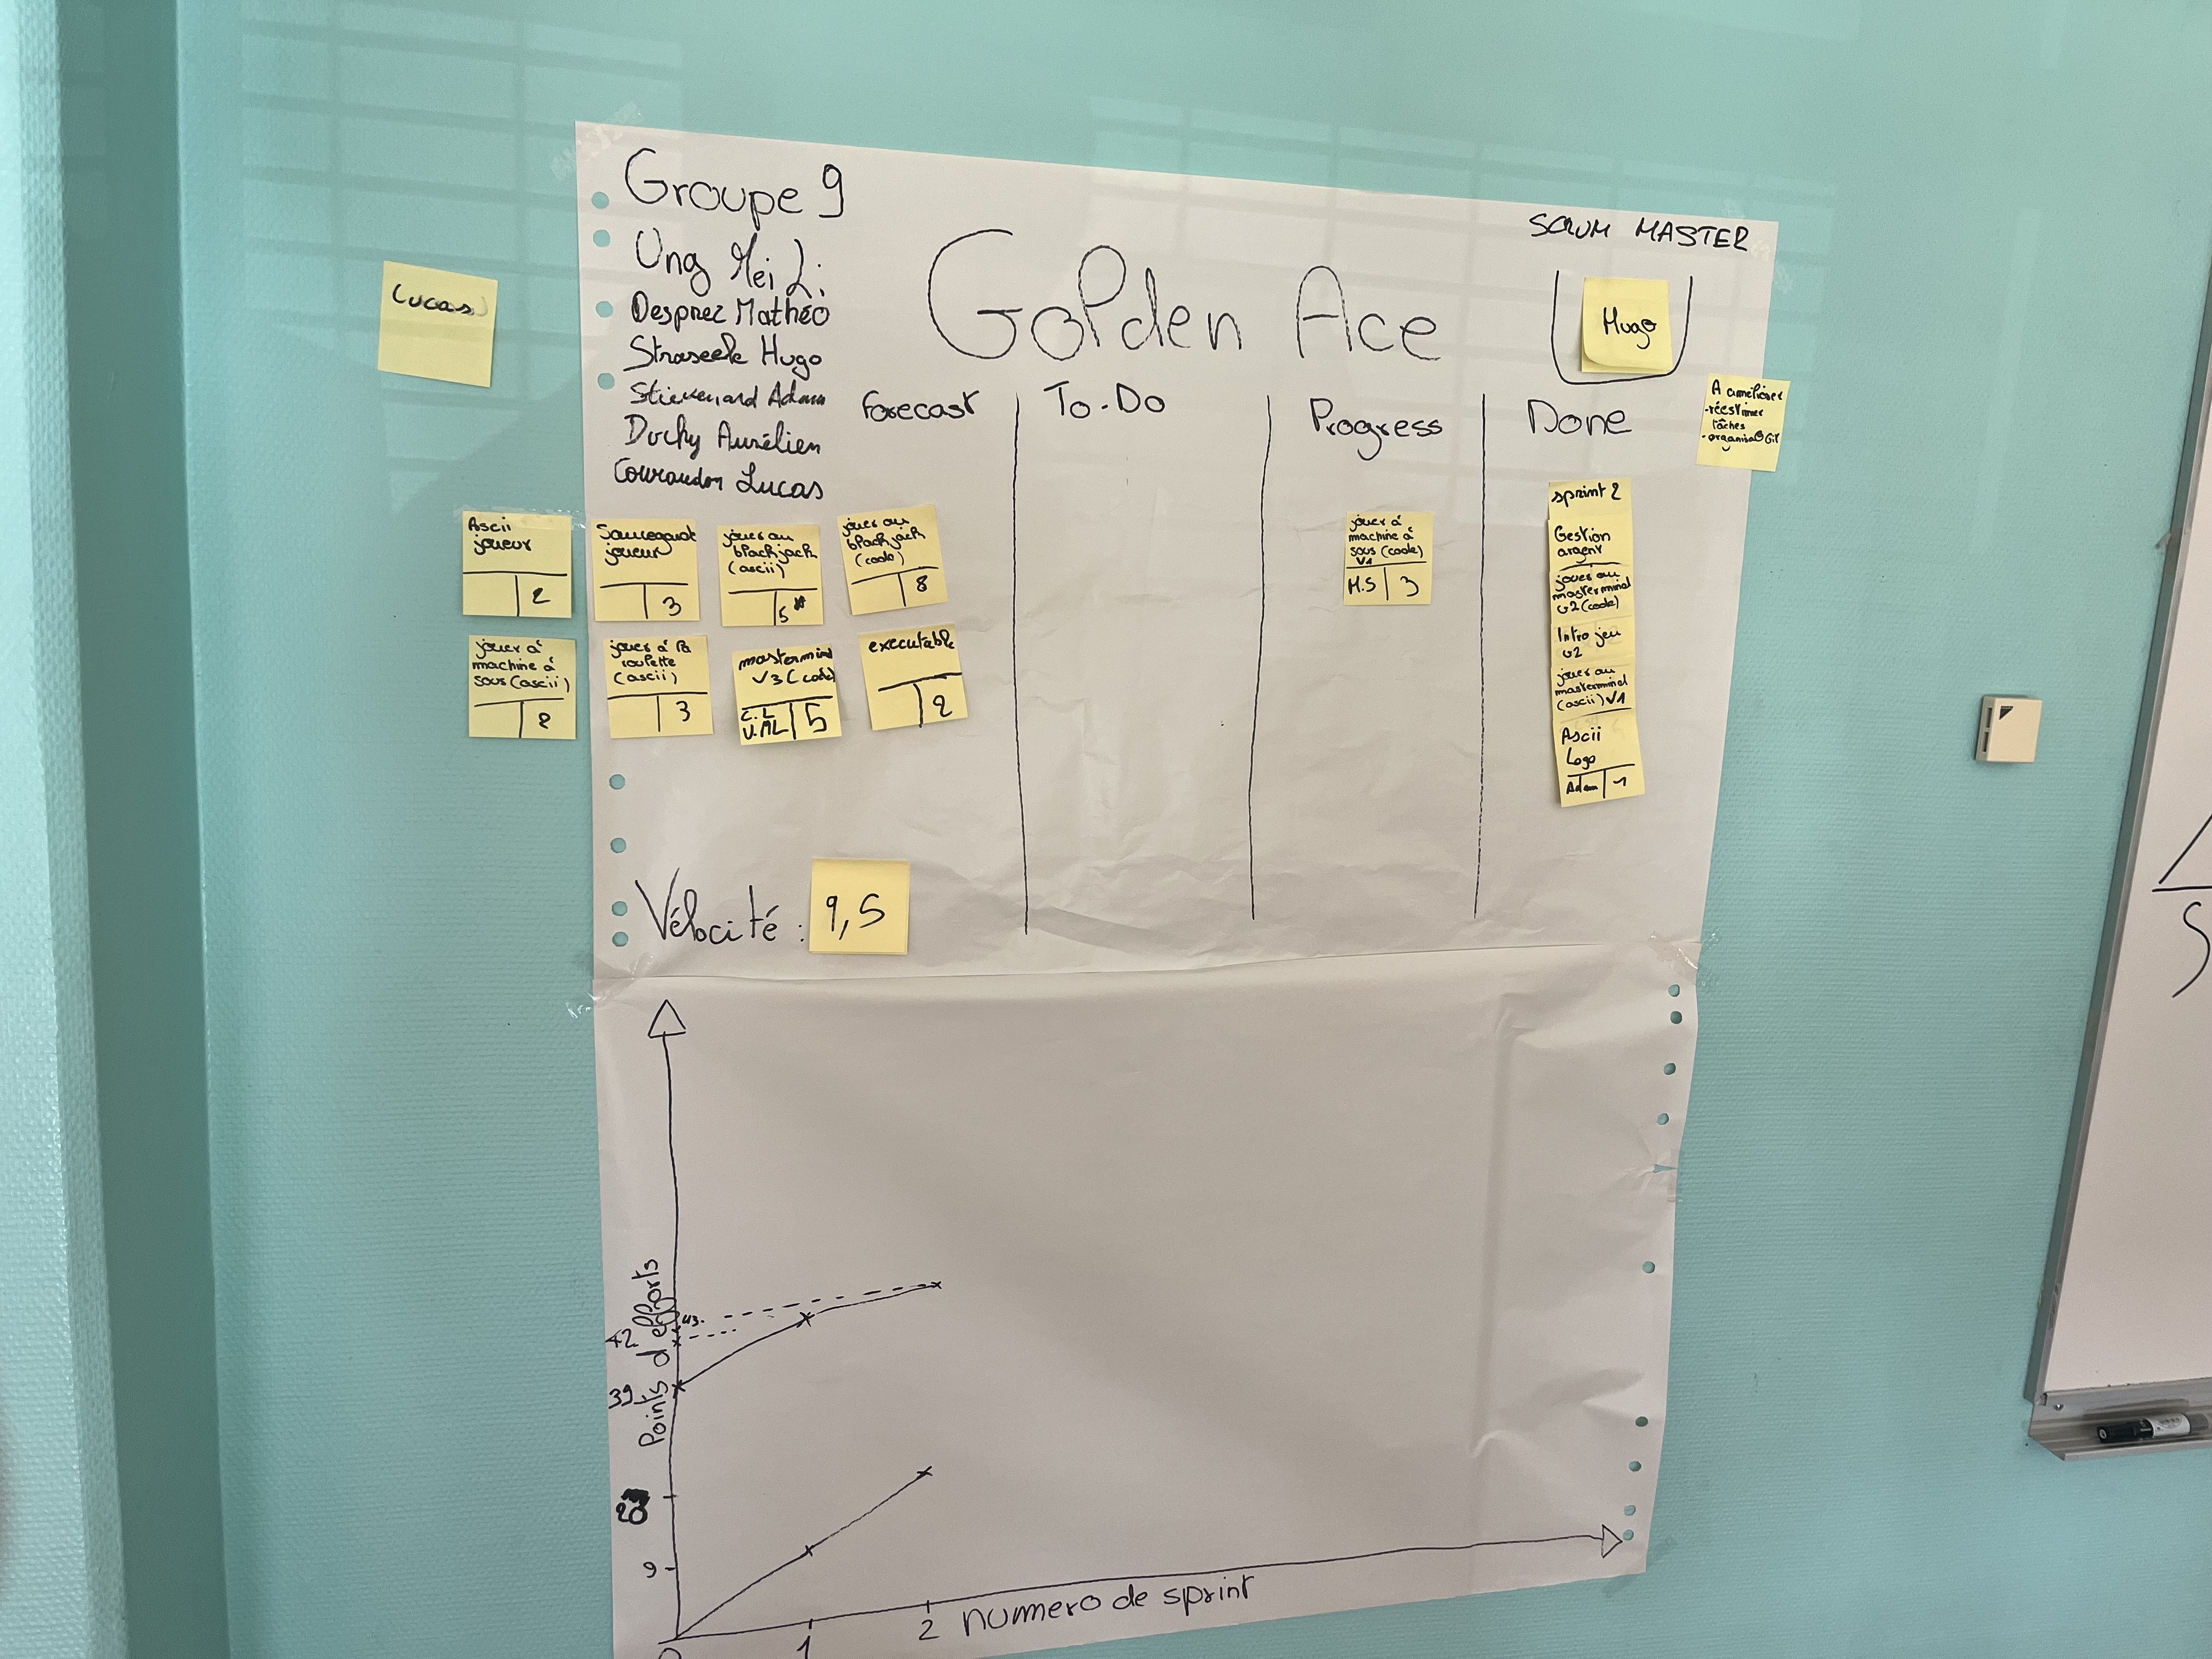 Groupe 9
Ung Mei Li
Desprez Mathéo
Straseele Hugo
Stievenard Adam
Duchy Aurélien
Lucas
Golden Ace
SCRUM MASTER
Hugo
Lucas
Forecast
To-Do
Progress
Done
A améliorer
-réestimer
tâches
-organisa° Git
Ascii
joueur
2
Sauvegarde
joueur
3
jouer au
blackjack
(ascii)
5
jouer au
blackjack
(code)
8
jouer à
machine à
sous (ascii)
2
jouer à la
roulette
(ascii)
3
mastermind
V3 (code)
C.L
U.ML
5
executable
2
jouer à
machine à
sous (code)
V1
H.S
3
sprint 2
Gestion
argent
jouer au
mastermind
v2 (code)
Intro jeu
v2
jouer au
mastermind
(ascii) V1
Ascii
Logo
Adam
1
Vélocité :
9,5
Points d'efforts
43
42
39
20
9
0
1
2
numero de sprint